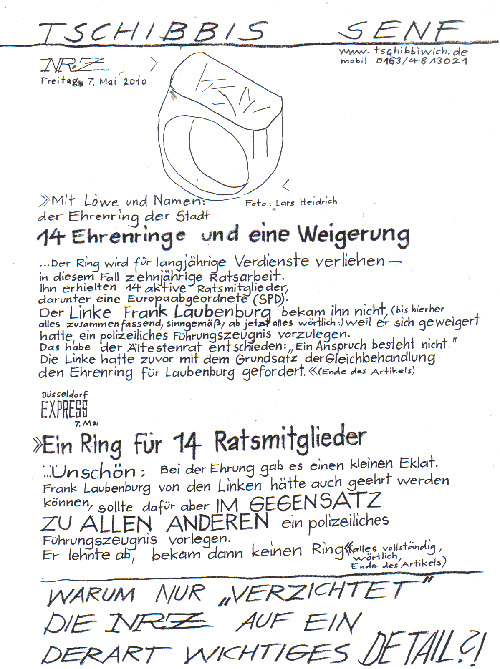 TSCHIBBIS SENF
www.tschibbiwich.de
mobil 0163/4813021
NRZ
Freitag, 7. Mai 2010
»Mit Löwe und Namen:
der Ehrenring der Stadt
Foto: Lars Heidrich
14 Ehrenringe und eine Weigerung
...Der Ring wird für langjährige Verdienste verliehen —
in diesem Fall zehnjährige Ratsarbeit.
Ihn erhielten 14 aktive Ratsmitglieder,
darunter eine Europaabgeordnete (SPD).
Der Linke Frank Laubenburg bekam ihn nicht, (bis hierher
alles zusammenfassend, sinngemäß; ab jetzt alles wörtlich:) weil er sich geweigert
hatte, ein polizeiliches Führungszeugnis vorzulegen.
Das habe der Ältestenrat entschieden: „Ein Anspruch besteht nicht"
Die Linke hatte zuvor mit dem Grundsatz der Gleichbehandlung
den Ehrenring für Laubenburg gefordert.« (Ende des Artikels)
Düsseldorf
EXPRESS
7. Mai
»Ein Ring für 14 Ratsmitglieder
...Unschön: Bei der Ehrung gab es einen kleinen Eklat.
Frank Laubenburg von den Linken hätte auch geehrt werden
können, sollte dafür aber IM GEGENSATZ
ZU ALLEN ANDEREN ein polizeiliches
Führungszeugnis vorlegen.
Er lehnte ab, bekam dann keinen Ring« (alles vollständig,
wörtlich,
Ende des Artikels)
WARUM NUR „VERZICHTET"
DIE NRZ AUF EIN
DERART WICHTIGES DETAIL?!